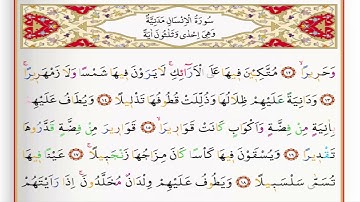 سُورَةُ الْاِنْسَانِ مَدَنِيَّةٌ
وَهِيَ اِحْدٰى وَثَلٰثُونَ اٰيَةً
وَحَرِيرًاۙ ﴿١٢﴾ مُتَّكِـِٔينَ فِيهَا عَلَى الْاَرَٓائِكِۚ لَا يَرَوْنَ فِيهَا شَمْسًا وَلَا زَمْهَرِيرًاۚ
﴿١٣﴾ وَدَانِيَةً عَلَيْهِمْ ظِلَالُهَا وَذُلِّلَتْ قُطُوفُهَا تَذْلِيلًا ﴿١٤﴾ وَيُطَافُ عَلَيْهِمْ
بِاٰنِيَةٍ مِنْ فِضَّةٍ وَاَكْوَابٍ كَانَتْ قَوَارِيرَا۬ۙ ﴿١٥﴾ قَوَارِيرَا۬ مِنْ فِضَّةٍ قَدَّرُوهَا
تَقْدِيرًا ﴿١٦﴾ وَيُسْقَوْنَ فِيهَا كَأْسًا كَانَ مِزَاجُهَا زَنْجَبِيلًاۚ ﴿١٧﴾ عَيْنًا فِيهَا
تُسَمّٰى سَلْسَبِيلًا ﴿١٨﴾ وَيَطُوفُ عَلَيْهِمْ وِلْدَانٌ مُخَلَّدُونَۚ اِذَا رَاَيْتَهُمْ